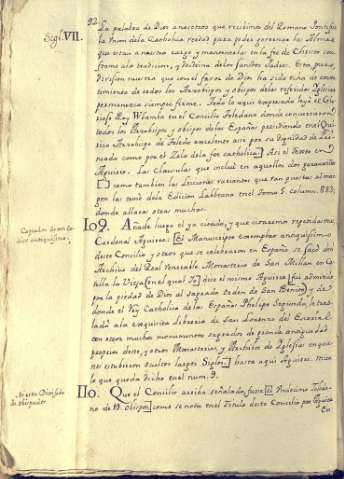 92.
Sigl. VII.
La palabra de Dios a nosotros que recibimos del Romano Pontifice
la Union de la Catholica verdad para poder governar las Almas
que estan a nuestro cargo y mantenerlas en la fee de Christo con
forme a la tradicion, y Doctrina de los Santos Padres. Esta pues
Division nuestra que con el favor de Dios ha sido hecha de consen
timiento de todos los Arzobispos y obispos de las referidas Iglesias
permanezca siempre firme. Toda la aqui expresada hizo el Glo
rioso Rey Wamba en el Concilio Toledano donde convocaron
todos los Arzobispos y obispos de las Españas presidiendo en el
Arzobispo de Toledo excelente assi por su dignidad de Pri
mado como por el zelo de la fee catholica] Asi el Texto en
Aguirre. Las clausulas que inclui en aquellos dos
] como tambien las lecciones variantes que van puestas al mar
gen las tome de la Edicion Labbeana en el tomo 5. column. 883;
donde allarse otras muchas.
Capitulos de un Co
dice antiquisimo.
109. Añade luego el ya citado, y que conviene repetir
Cardenal Aguirre: [El Manuscripto exemplar antiquissimo
de este Concilio y otros que se celebraron en España se sacó del
Archivo del Real Venerable Monasterio de San Millan en Cas
tilla la Vieja (en el qual Yo dice el mismo Aguirre) fui admitido
por la piedad de Dios al sagrado orden de San Benito) y de
donde el Rey Catholico de las Españas Phelipe Segundo, le tras
ladó a la exquisita Libreria de San Lorenzo del Escorial
con otros muchos monumentos sagrados de grande antiguedad
papeles de este, y otros Monasterios, y Archivos de Iglesias en que
nes estubieron ocultos largos Siglos] hasta aqui Aguirre. Mira
lo que queda dicho en el num. 9.
110. Que el Concilio arriba señalado, fuese [el Undecimo Toleda
no de 19. Obispos] como se nota en el Titulo de este Concilio por Aguirre
En